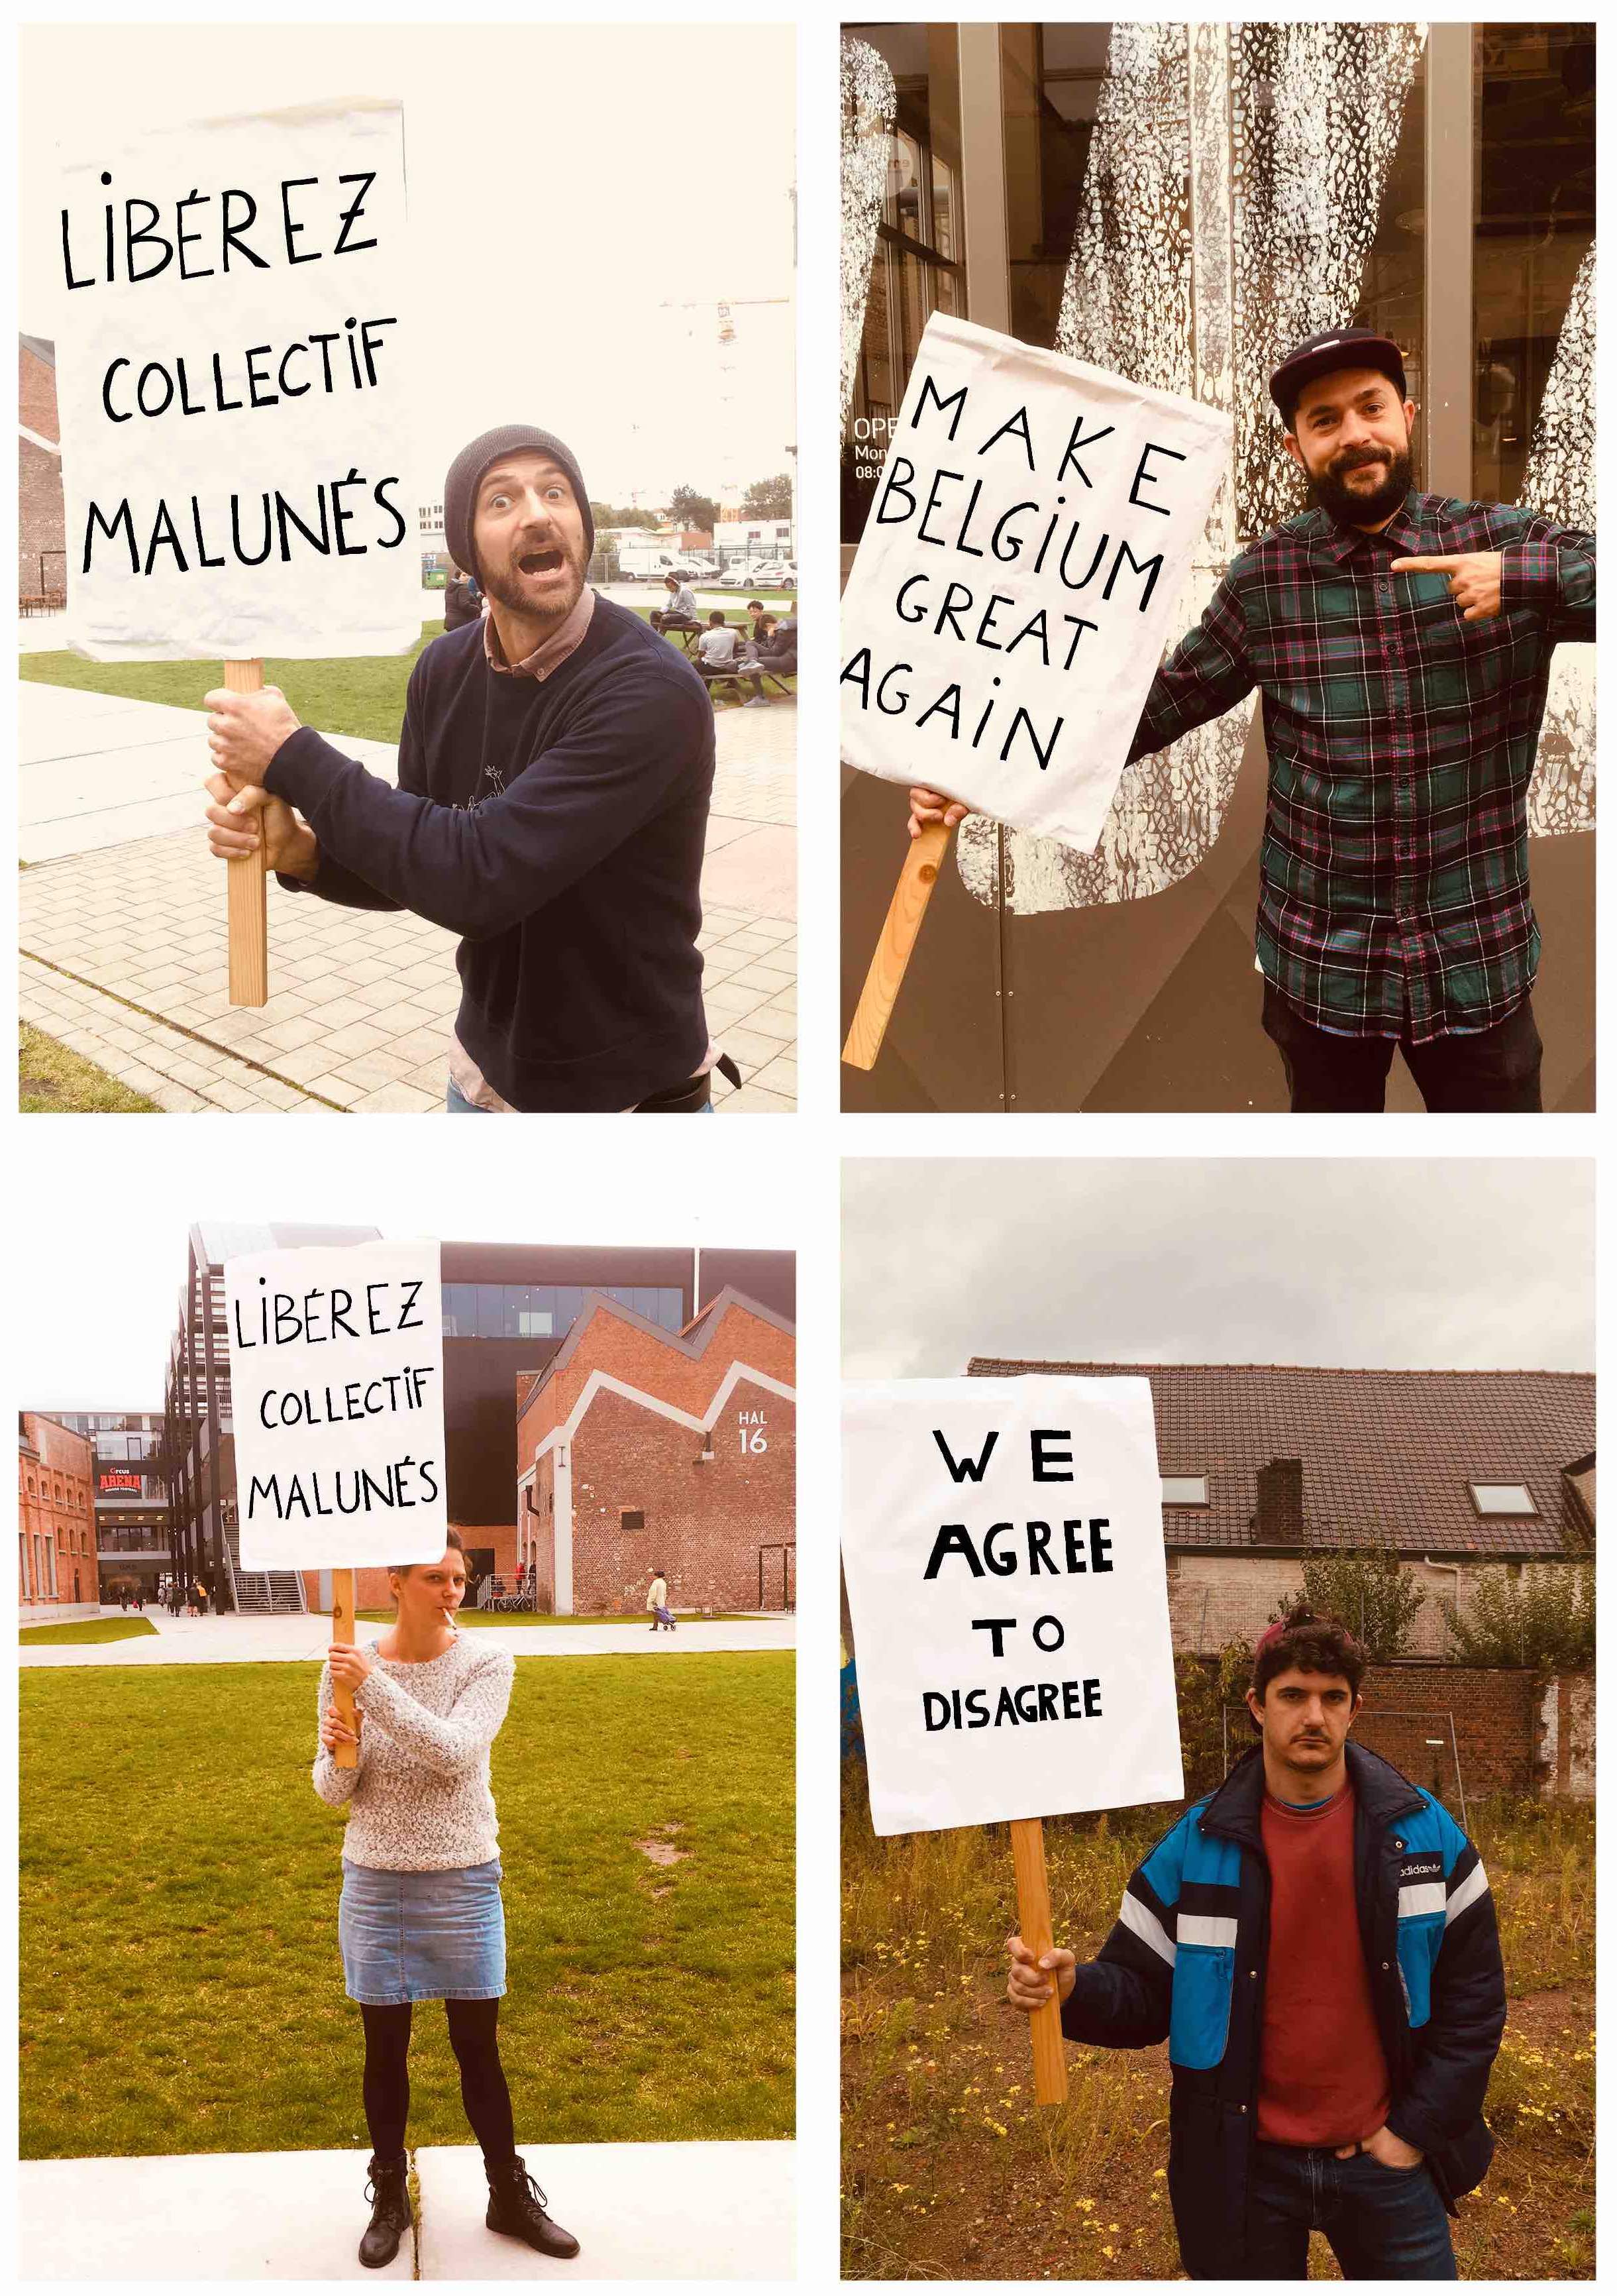 LIBÉREZ
COLLECTIF
MALUNÉS
MAKE
BELGIUM
GREAT
AGAIN
LIBÉREZ
COLLECTIF
MALUNÉS
HAL
16
Circus
ARENA
WE
AGREE
TO
DISAGREE
adidas